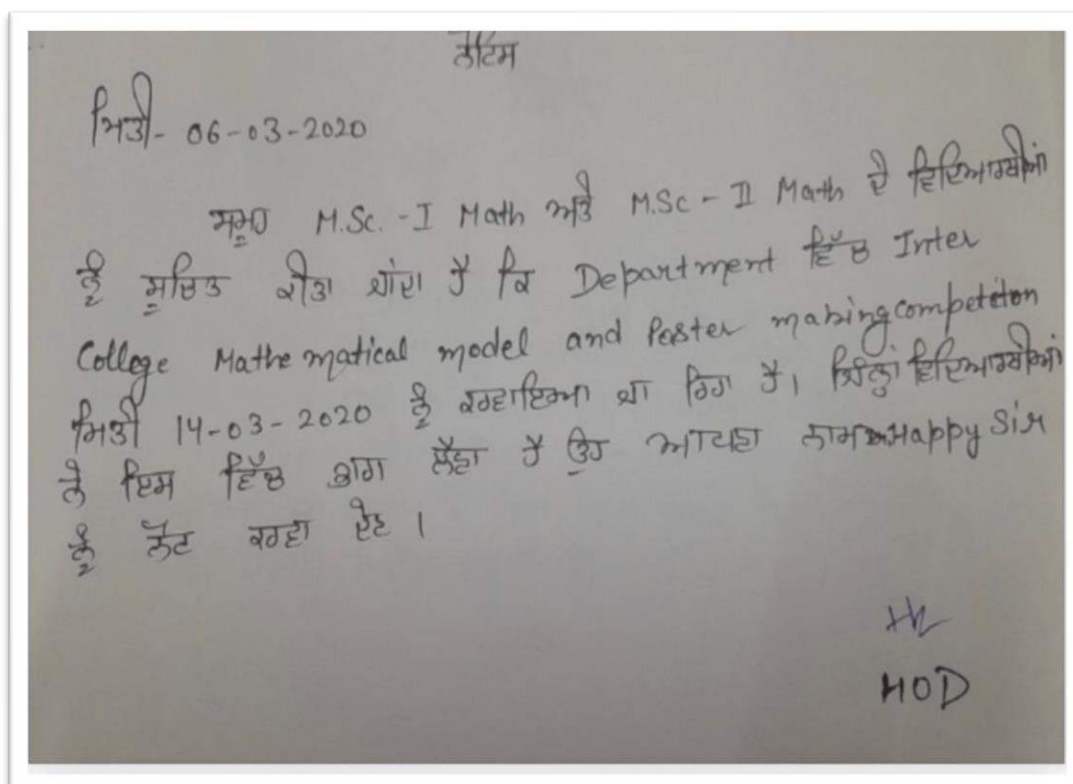 ਨੋਟਿਸ
ਮਿਤੀ- 06-03-2020
ਸਮੂਹ M.Sc. - I Math ਅਤੇ M.Sc - II Math ਦੇ ਵਿਦਿਆਰਥੀਆਂ
ਨੂੰ ਸੂਚਿਤ ਕੀਤਾ ਜਾਂਦਾ ਹੈ ਕਿ Department ਵਿੱਚ Inter
College Mathematical model and Poster making competiton
ਮਿਤੀ 14-03-2020 ਨੂੰ ਕਰਵਾਇਆ ਜਾ ਰਿਹਾ ਹੈ। ਜਿਨ੍ਹਾਂ ਵਿਦਿਆਰਥੀਆਂ
ਨੇ ਇਸ ਵਿੱਚ ਭਾਗ ਲੈਣਾ ਹੈ ਉਹ ਆਪਣਾ ਨਾਮ Happy Sir
ਨੂੰ ਨੋਟ ਕਰਵਾ ਦੇਣ।
HOD